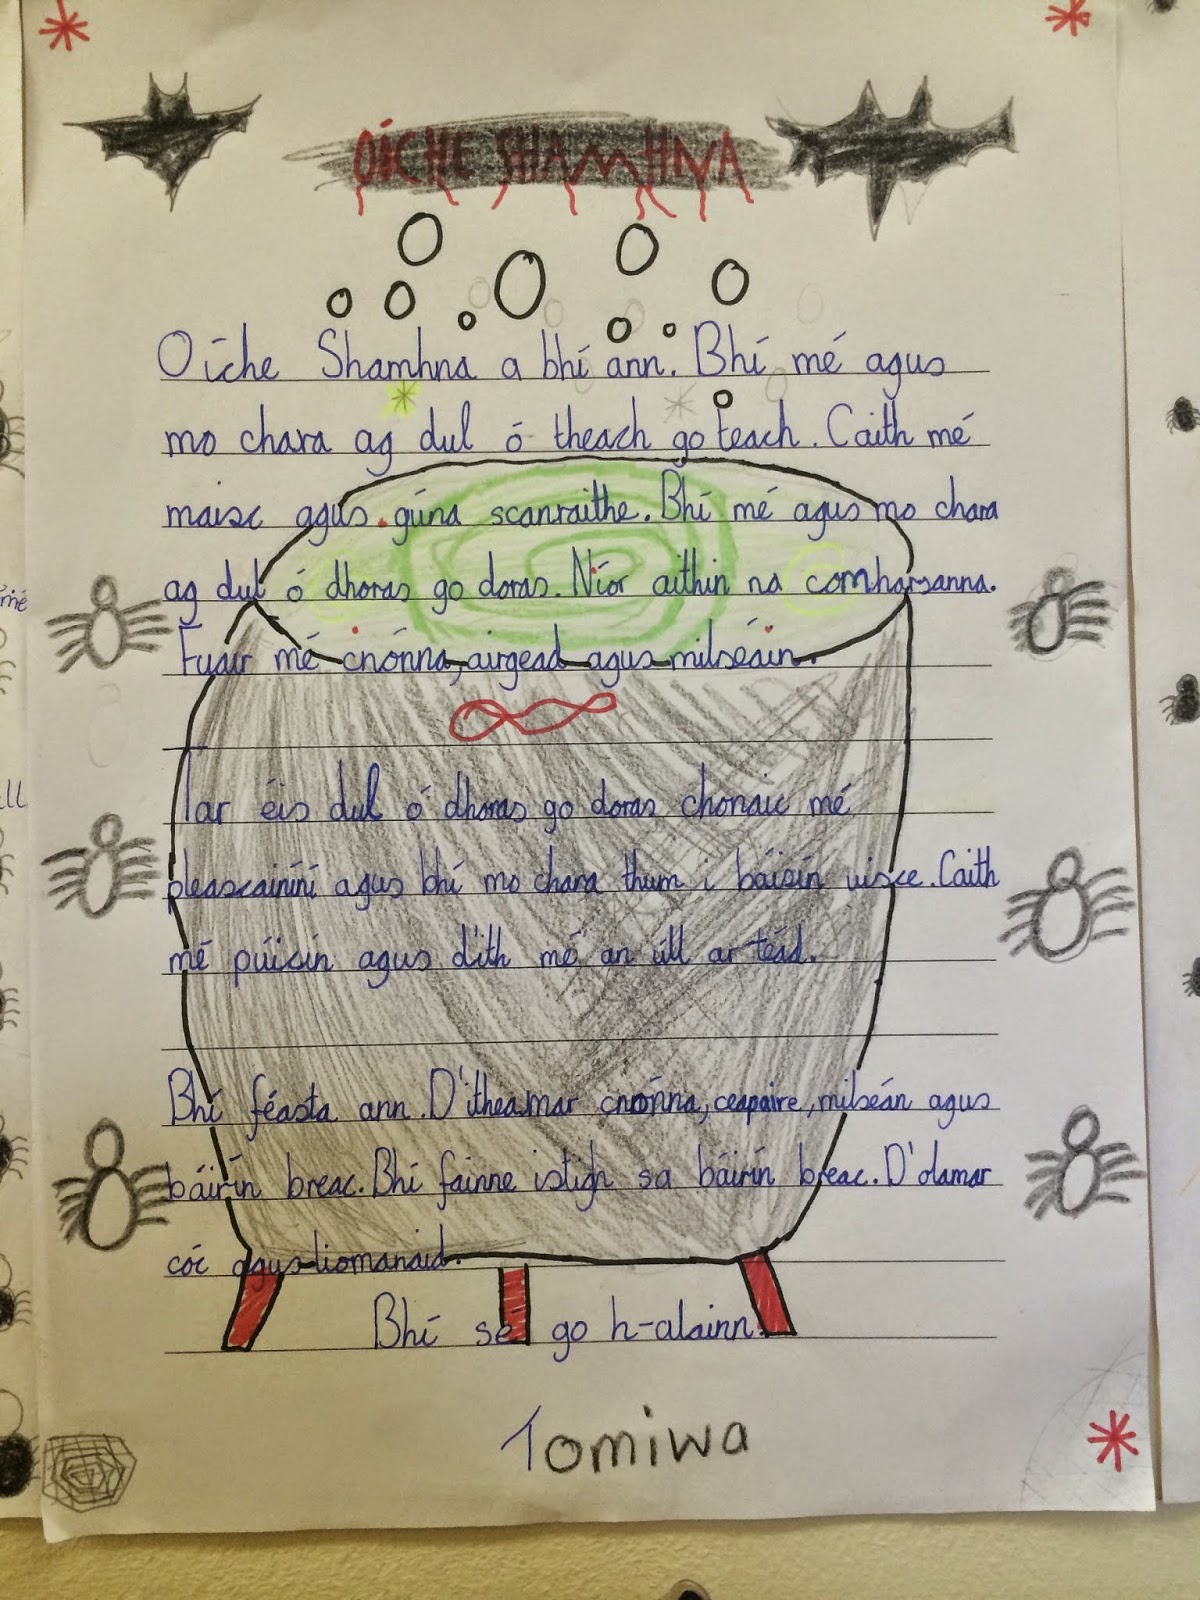 OÍCHE SHAMHNA
Oíche Shamhna a bhí ann. Bhí mé agus
mo chara ag dul ó theach go teach. Caith mé
maisc agus gúna scanraithe. Bhí mé agus mo chara
ag dul ó dhoras go doras. Níor aithin na comharsanna.
Fuair mé cnónna, airgead agus milseáin.
Iar éis dul ó dhoras go doras chonaic mé
pleascainíní agus bhí mo chara thum i báisín uisce. Caith
mé púicín agus d'ith mé an úll ar téad.
Bhí féasta ann. D'itheamar cnónna, ceapaire, milseán agus
báirín breac. Bhí fainne istigh sa báirín breac. D'olamar
cóc agus liomanaid.
Bhí sé go h-alainn.
Tomiwa